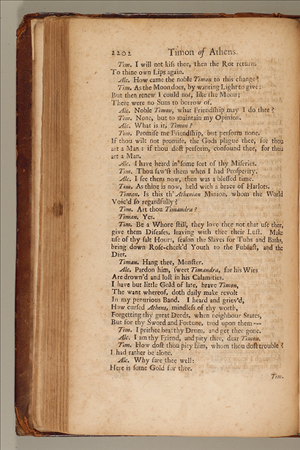 2202 Timon of Athens.
Tim. I will not kiss thee, then the Rot return.
To thine own Lips again.
Alc. How came the noble Timon to this change?
Tim. As the Moon does, by wanting Light to give:
But then renew I could not, like the Moon;
There were no Suns to borrow of.
Alc. Noble Timon, what Friendship may I do thee?
Tim. None, but to maintain my Opinion.
Alc. What is it, Timon?
Tim. Promise me Friendship, but perform none.
If thou wilt not promise, the Gods plague thee, for thou
art a Man: if thou dost perform, confound thee, for thou
art a Man.
Alc. I have heard in some sort of thy Miseries.
Tim. Thou saw'st them when I had Prosperity.
Alc. I see them now, then was a blessed time.
Tim. As thine is now, held with a brace of Harlots.
Timan. Is this th' Athenian Minion, whom the World
Voic'd so regardfully?
Tim. Art thou Timandra?
Timan. Yes.
Tim. Be a Whore still, they love thee not that use thee,
give them Diseases, leaving with thee their Lust. Make
use of thy salt Hours, season the Slaves for Tubs and Baths,
bring down Rose-cheek'd Youth to the Fubfast, and the
Diet.
Timan. Hang thee, Monster.
Alc. Pardon him, sweet Timandra, for his Wits
Are drown'd and lost in his Calamities.
I have but little Gold of late, brave Timon,
The want whereof, doth daily make revolt
In my penurious Band. I heard and griev'd,
How cursed Athens, mindless of thy worth,
Forgetting thy great Deeds, when neighbour States,
But for thy Sword and Fortune, trod upon them—
Tim. I prithee beat thy Drum, and get thee gone.
Alc. I am thy Friend, and pity thee, dear Timon.
Tim. How dost thou pity him, whom thou dost trouble?
I had rather be alone.
Alc. Why fare thee well:
Here is some Gold for thee.
Tim.